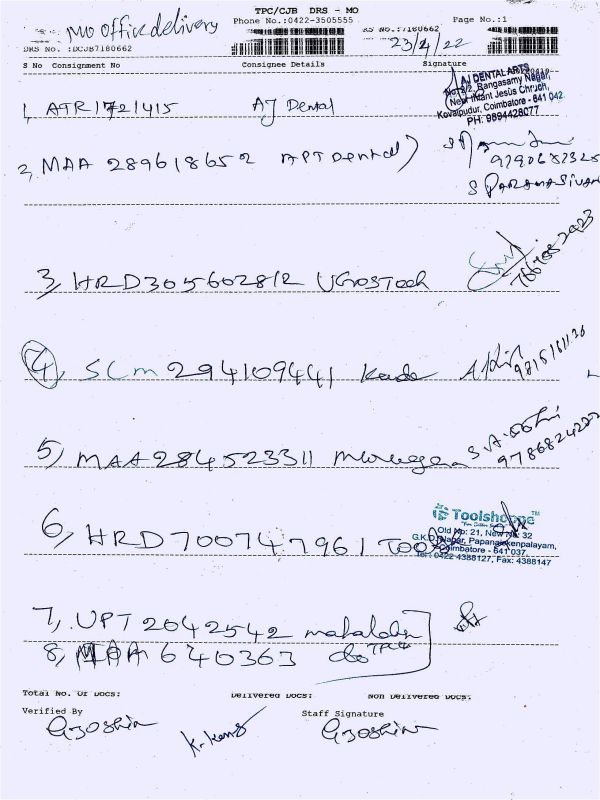 TPC/CJB DRS - MO
MO office delivery
Phone No.:0422-3505555
Page No.:1
DRS No. :DCJB7180662
RS No.:7180662
23/4/22
S No Consignment No Consignee Details Signature
1, ATR1721415 AJ Dental
AJ DENTAL ARTS
Rangasamy Nagar,
New Infant Jesus Chruch,
Kovaipudur, Coimbatore - 641 042.
PH: 9894428077
2, MAA 289618652 APT Dental
S PARAMASIVAN
3, HRD305602812 UGrosTech
4, SCM 294109441
5, MAA284523311 Murugan
6, HRD700747961 Tools
Toolshoppe™
Old No: 21, New No: 32
G.K.D. Nagar, Papanaickenpalayam,
Coimbatore - 641 037.
Tel: 0422 4388127, Fax: 4388147
7, UPT 2042542
8, MAA 640363 do
Total No. Of Docs: Delivered Docs: Non Delivered Docs:
Verified By Staff Signature